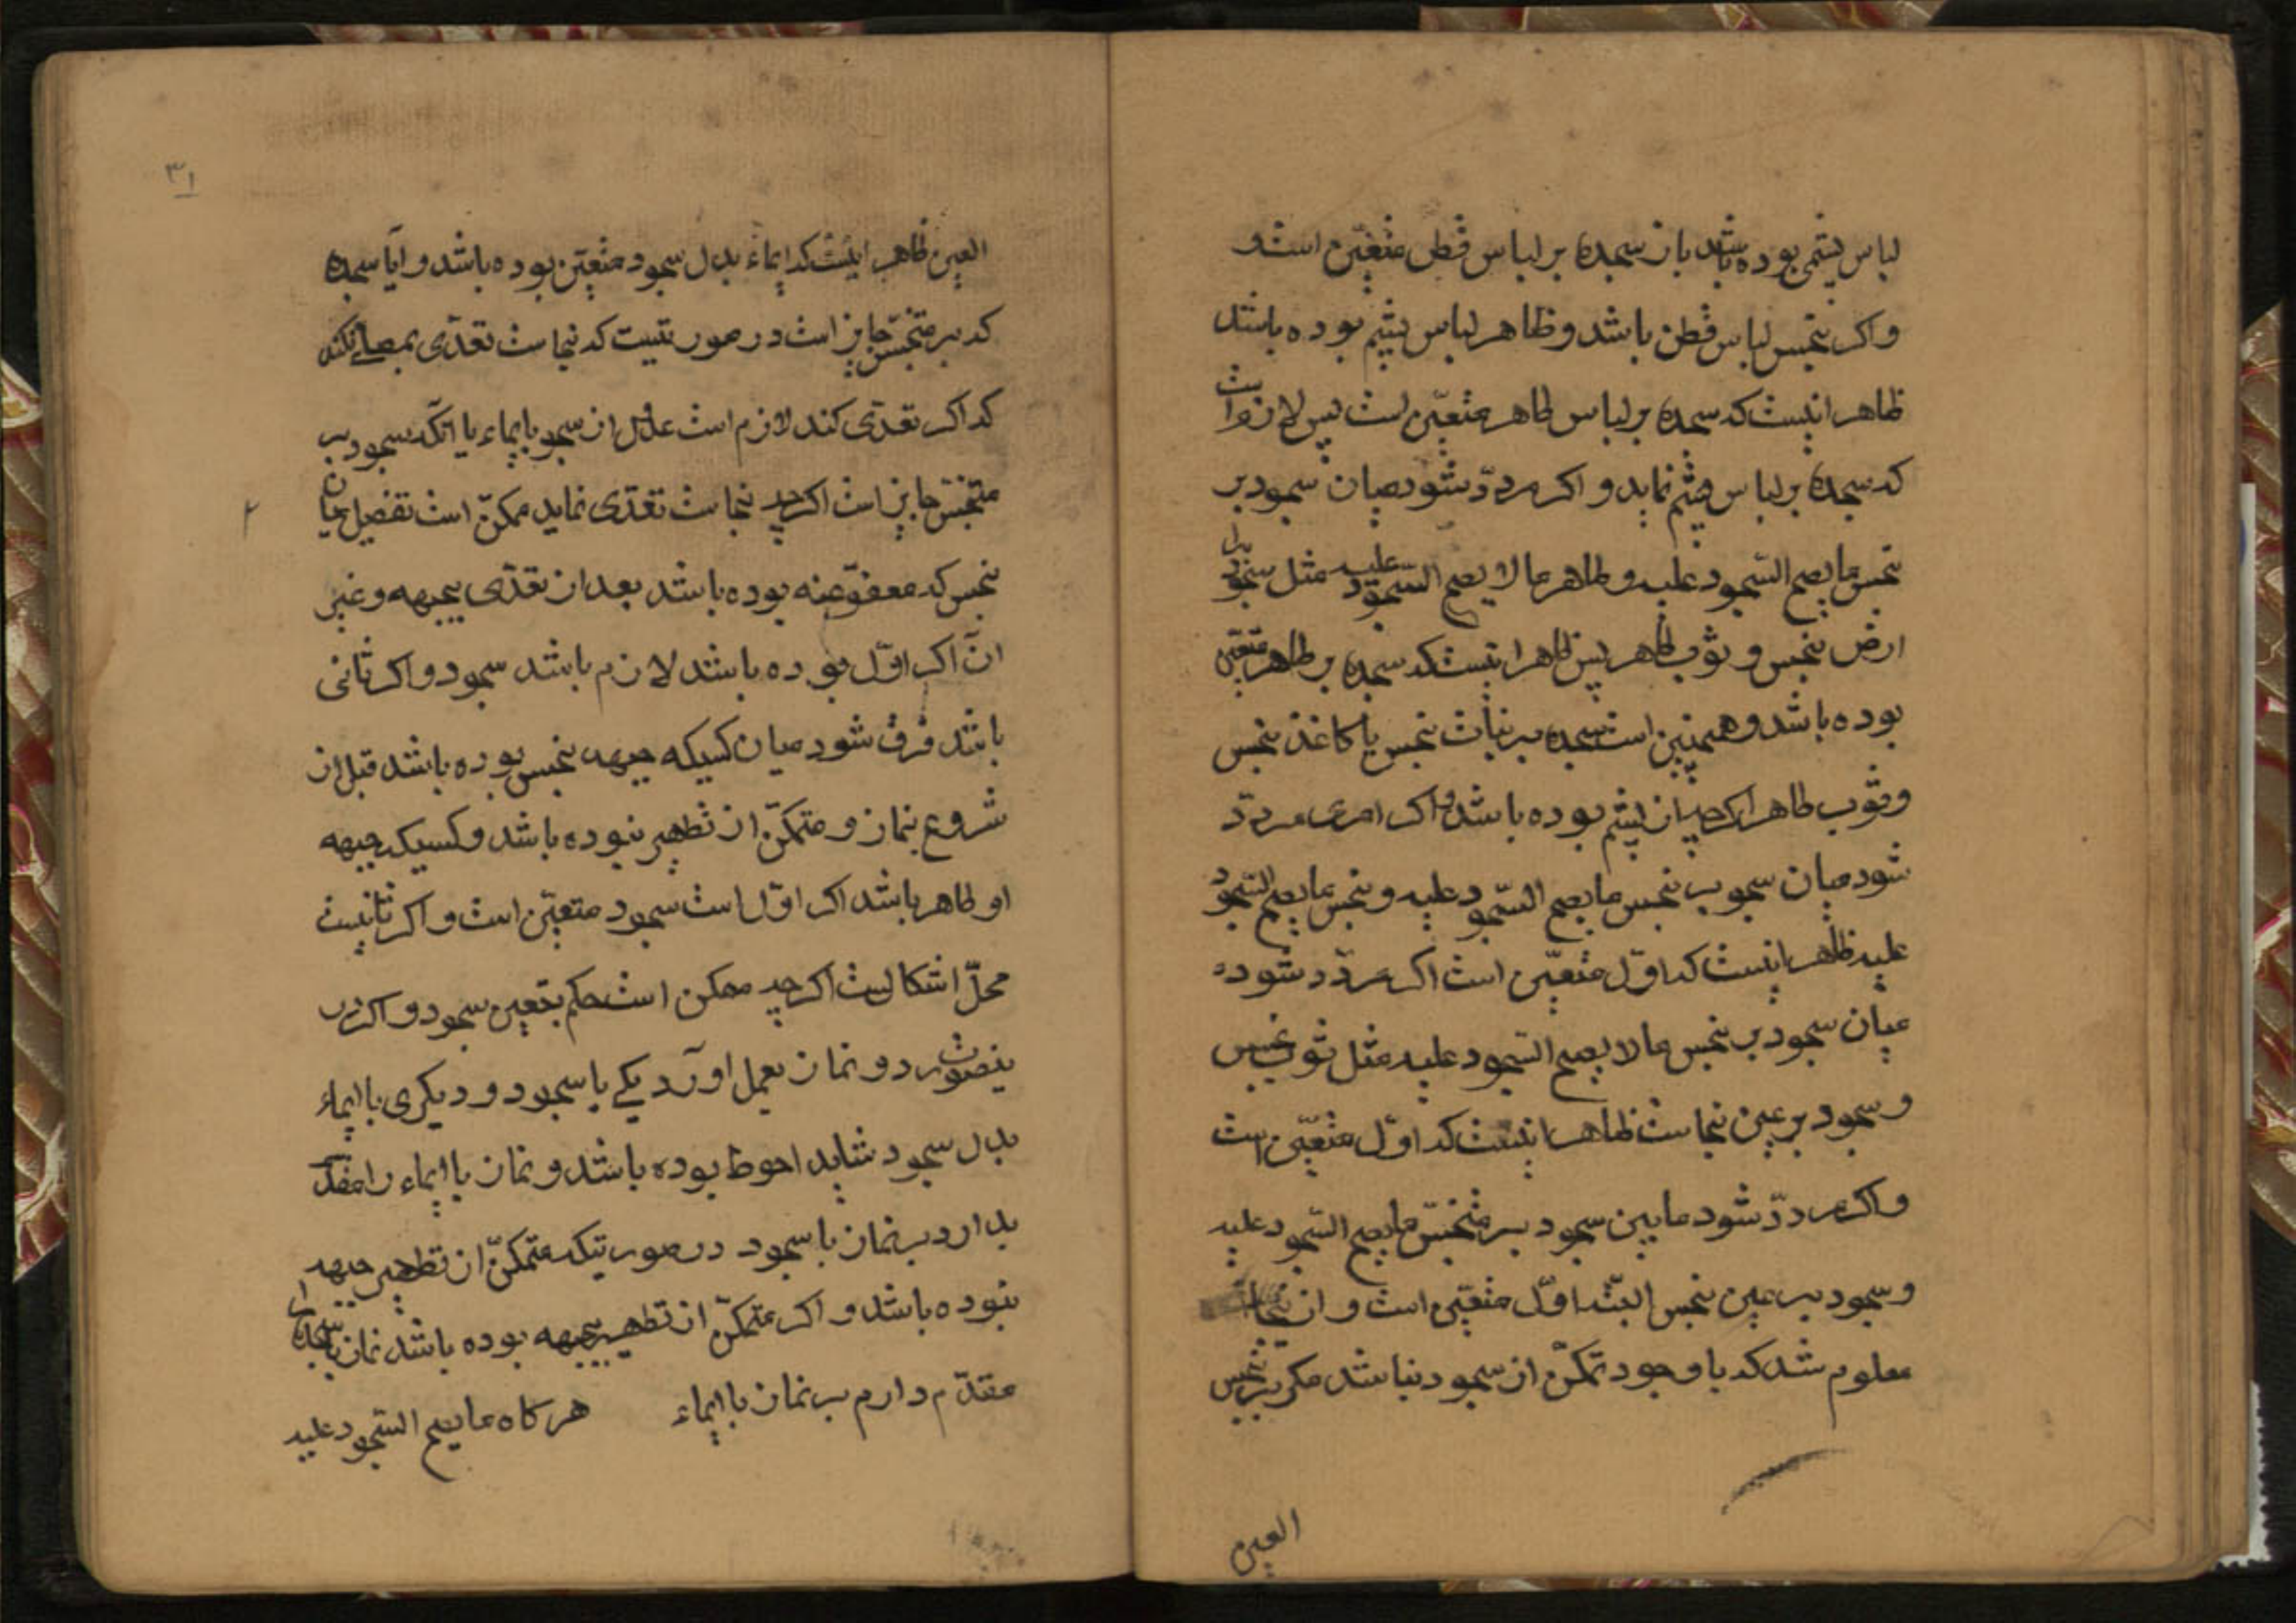 لباس پشمی بوده باشد باز سجده بر لباس قطن متعیّن است و
و اکر نجس لباس قطن باشد و طاهر لباس پشم بوده باشد
ظاهر اینست که سجده بر لباس طاهر متعیّن است پس لازم است
که سجده بر لباس پشم نماید و اکر مردّد شود میان سجود بر
نجس ما یصح السّجود علیه و طاهر ما لا یصح السّجود علیه مثل سجود بر
ارض نجس و ثوب طاهر پس ظاهر اینست که سجده بر طاهر متعیّن
بوده باشد و همچنین است سجده بر نبات نجس یا کاغذ نجس
و ثوب طاهر اکرچه از پشم بوده باشد و اکر امری مردّد
شود میان سجود بر نجس ما یصح السّجود علیه و نجس ما یصح السّجود
علیه ظاهر اینست که اوّل متعیّن است اکر مردّد شود
میان سجود بر نجس ما لا یصح السّجود علیه مثل ثوب نجس
و سجود بر عین نجاست ظاهر اینست که اوّل متعیّن است
و اکر مردّد شود ما بین سجود بر متنجّس ما یصح السّجود علیه
و سجود بر عین نجس البتّه اوّل متعیّن است و از
معلوم شد که با وجود تمکّن از سجود نباشد مکر بر نجس
العین
۳۱
العین ظاهر اینست که ایماء بدل سجود متعیّن بوده باشد و آیا سجده
که بر متنجّس جایز است در صورتیست که نجاست تعدّی بمصلّی نکند
که اکر تعدّی کند لازم است عدول از سجود بایماء یا آنکه سجود بر
متنجّس جایز است اکرچه نجاست تعدّی نماید ممکن است تفصیل میان
نجس که معفوّ عنه بوده باشد بعد از تعدّی بجبهه و غیر
آن اکر اوّل بوده باشد لازم باشد سجود و اکر ثانی
باشد فرق شود میان کسیکه جبهه نجس بوده باشد قبل از
شروع بنماز و متمکّن از تطهیر نبوده باشد و کسیکه جبهه
او طاهر باشد اکر اوّل است سجود متعیّن است و اکر ثانیست
محلّ اشکالست اکرچه ممکن است حکم بتعین سجود و اکر در
ینصورت دو نماز بعمل آورد یکی با سجود و دیکری با ایماء
بدل سجود شاید احوط بوده باشد و نماز با ایماء را مقدّم
بدارد بر نماز با سجود در صورتیکه متمکّن از تطهیر جبهه
نبوده باشد و اکر متمکّن از تطهیر جبهه بوده باشد نماز با سجده را
مقدّم دارم بر نماز با ایماء هرکاه ما یصح السّجود علیه